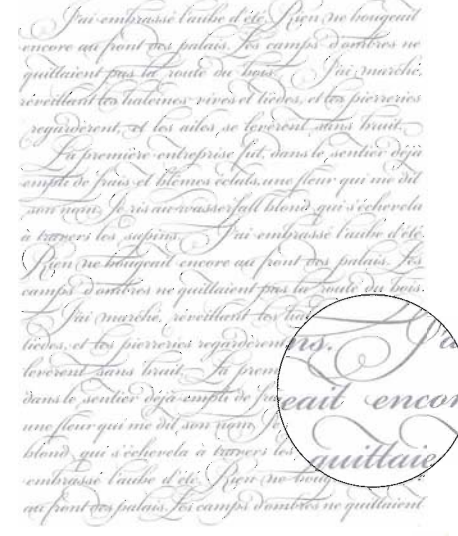 J'ai embrassé l'aube d'été. Rien ne bougeait
encore au front des palais. Les camps d'ombres ne
quittaient pas la route du bois. J'ai marché,
réveillant les haleines vives et tièdes, et les pierreries
regardèrent, et les ailes se levèrent sans bruit.
La première entreprise fut, dans le sentier déjà
empli de frais et blêmes éclats, une fleur qui me dit
son nom. Je ris au wasserfall blond qui s'échevela
à travers les sapins. J'ai embrassé l'aube d'été.
Rien ne bougeait encore au front des palais. Les
camps d'ombres ne quittaient pas la route du bois.
J'ai marché, réveillant les
tièdes, et les pierreries regardèrent
levèrent sans bruit. La prem
dans le sentier déjà empli de
une fleur qui me dit son nom. Je
blond qui s'échevela à travers les
embrassé l'aube d'été. Rien ne boug
au front des palais. Les camps d'ombres ne quittaient
ns.
J'a
eait encor
quittaie